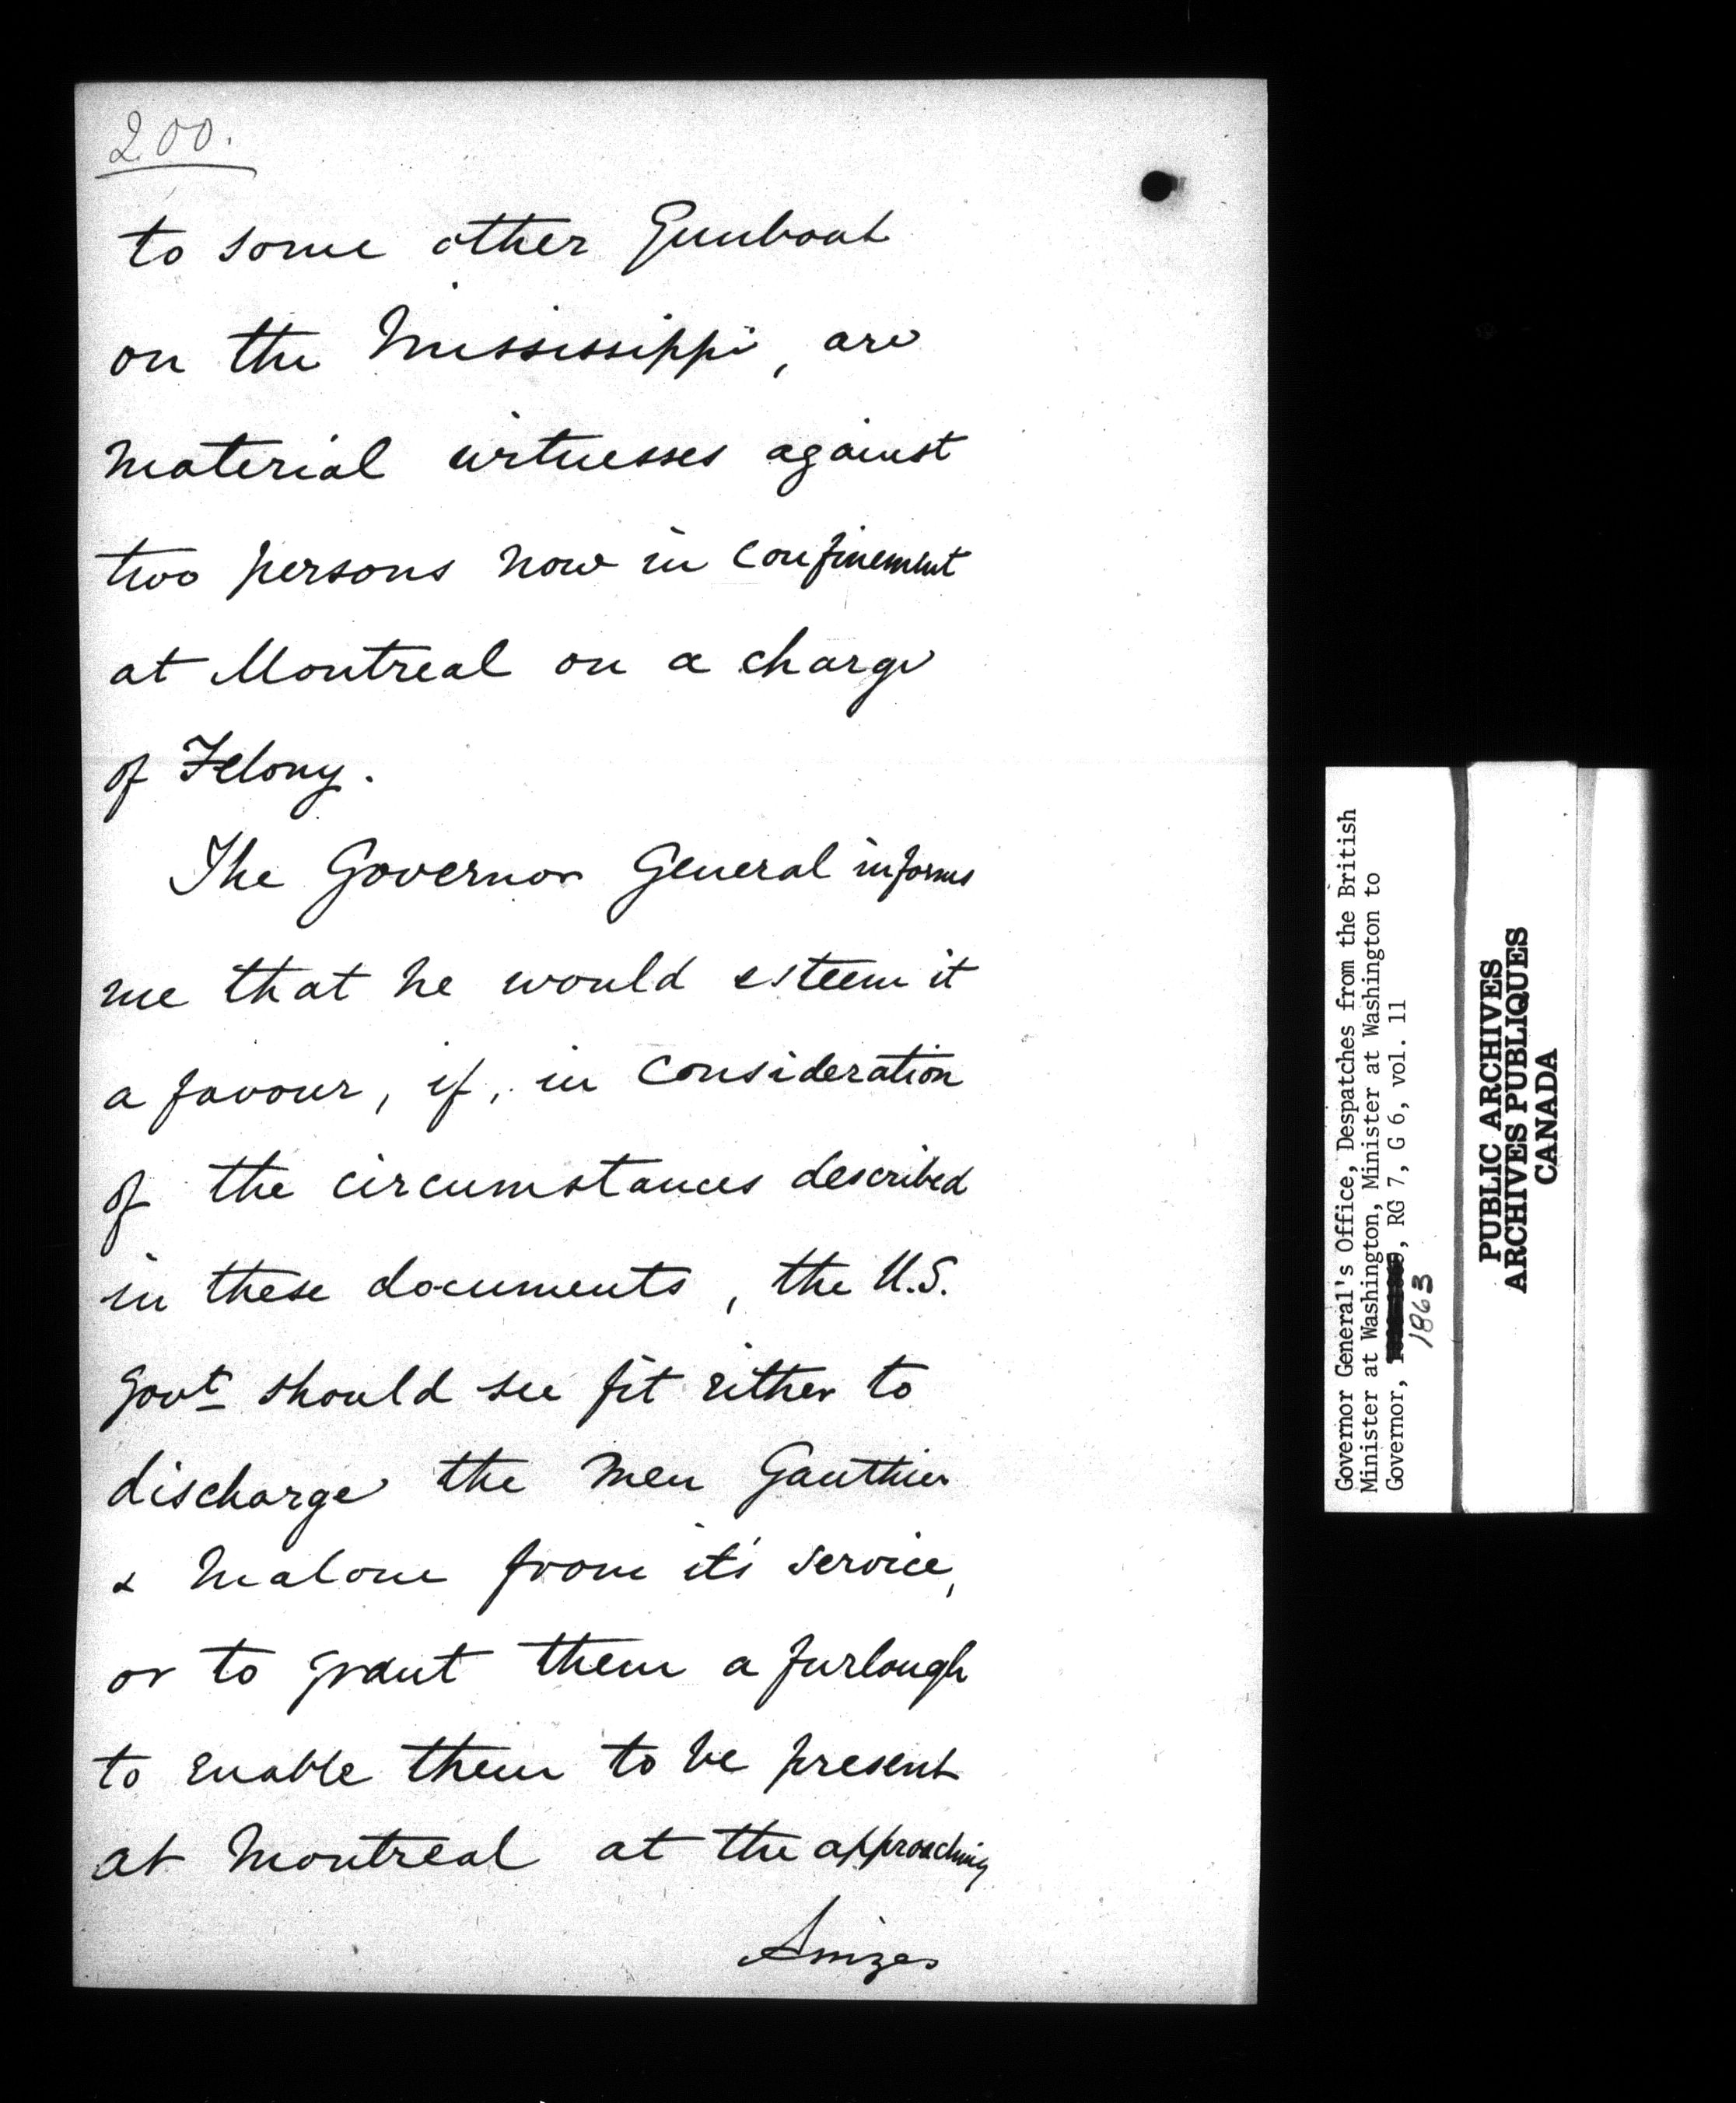 200.
to some other Gunboat
on the Mississippi, are
material witnesses against
two persons now in confinement
at Montreal on a charge
of Felony.
The Governor General informs
me that he would esteem it
a favour, if, in consideration
of the circumstances described
in these documents, the U.S.
Govt should see fit either to
discharge the men Gauthier
& Malone from it's service,
or to grant them a furlough
to enable them to be present
at Montreal at the approaching
Assizes
Governor General's Office, Despatches from the British
Minister at Washington, Minister at Washington to
Governor, , RG 7, G 6, vol. 11
1863
PUBLIC ARCHIVES
ARCHIVES PUBLIQUES
CANADA